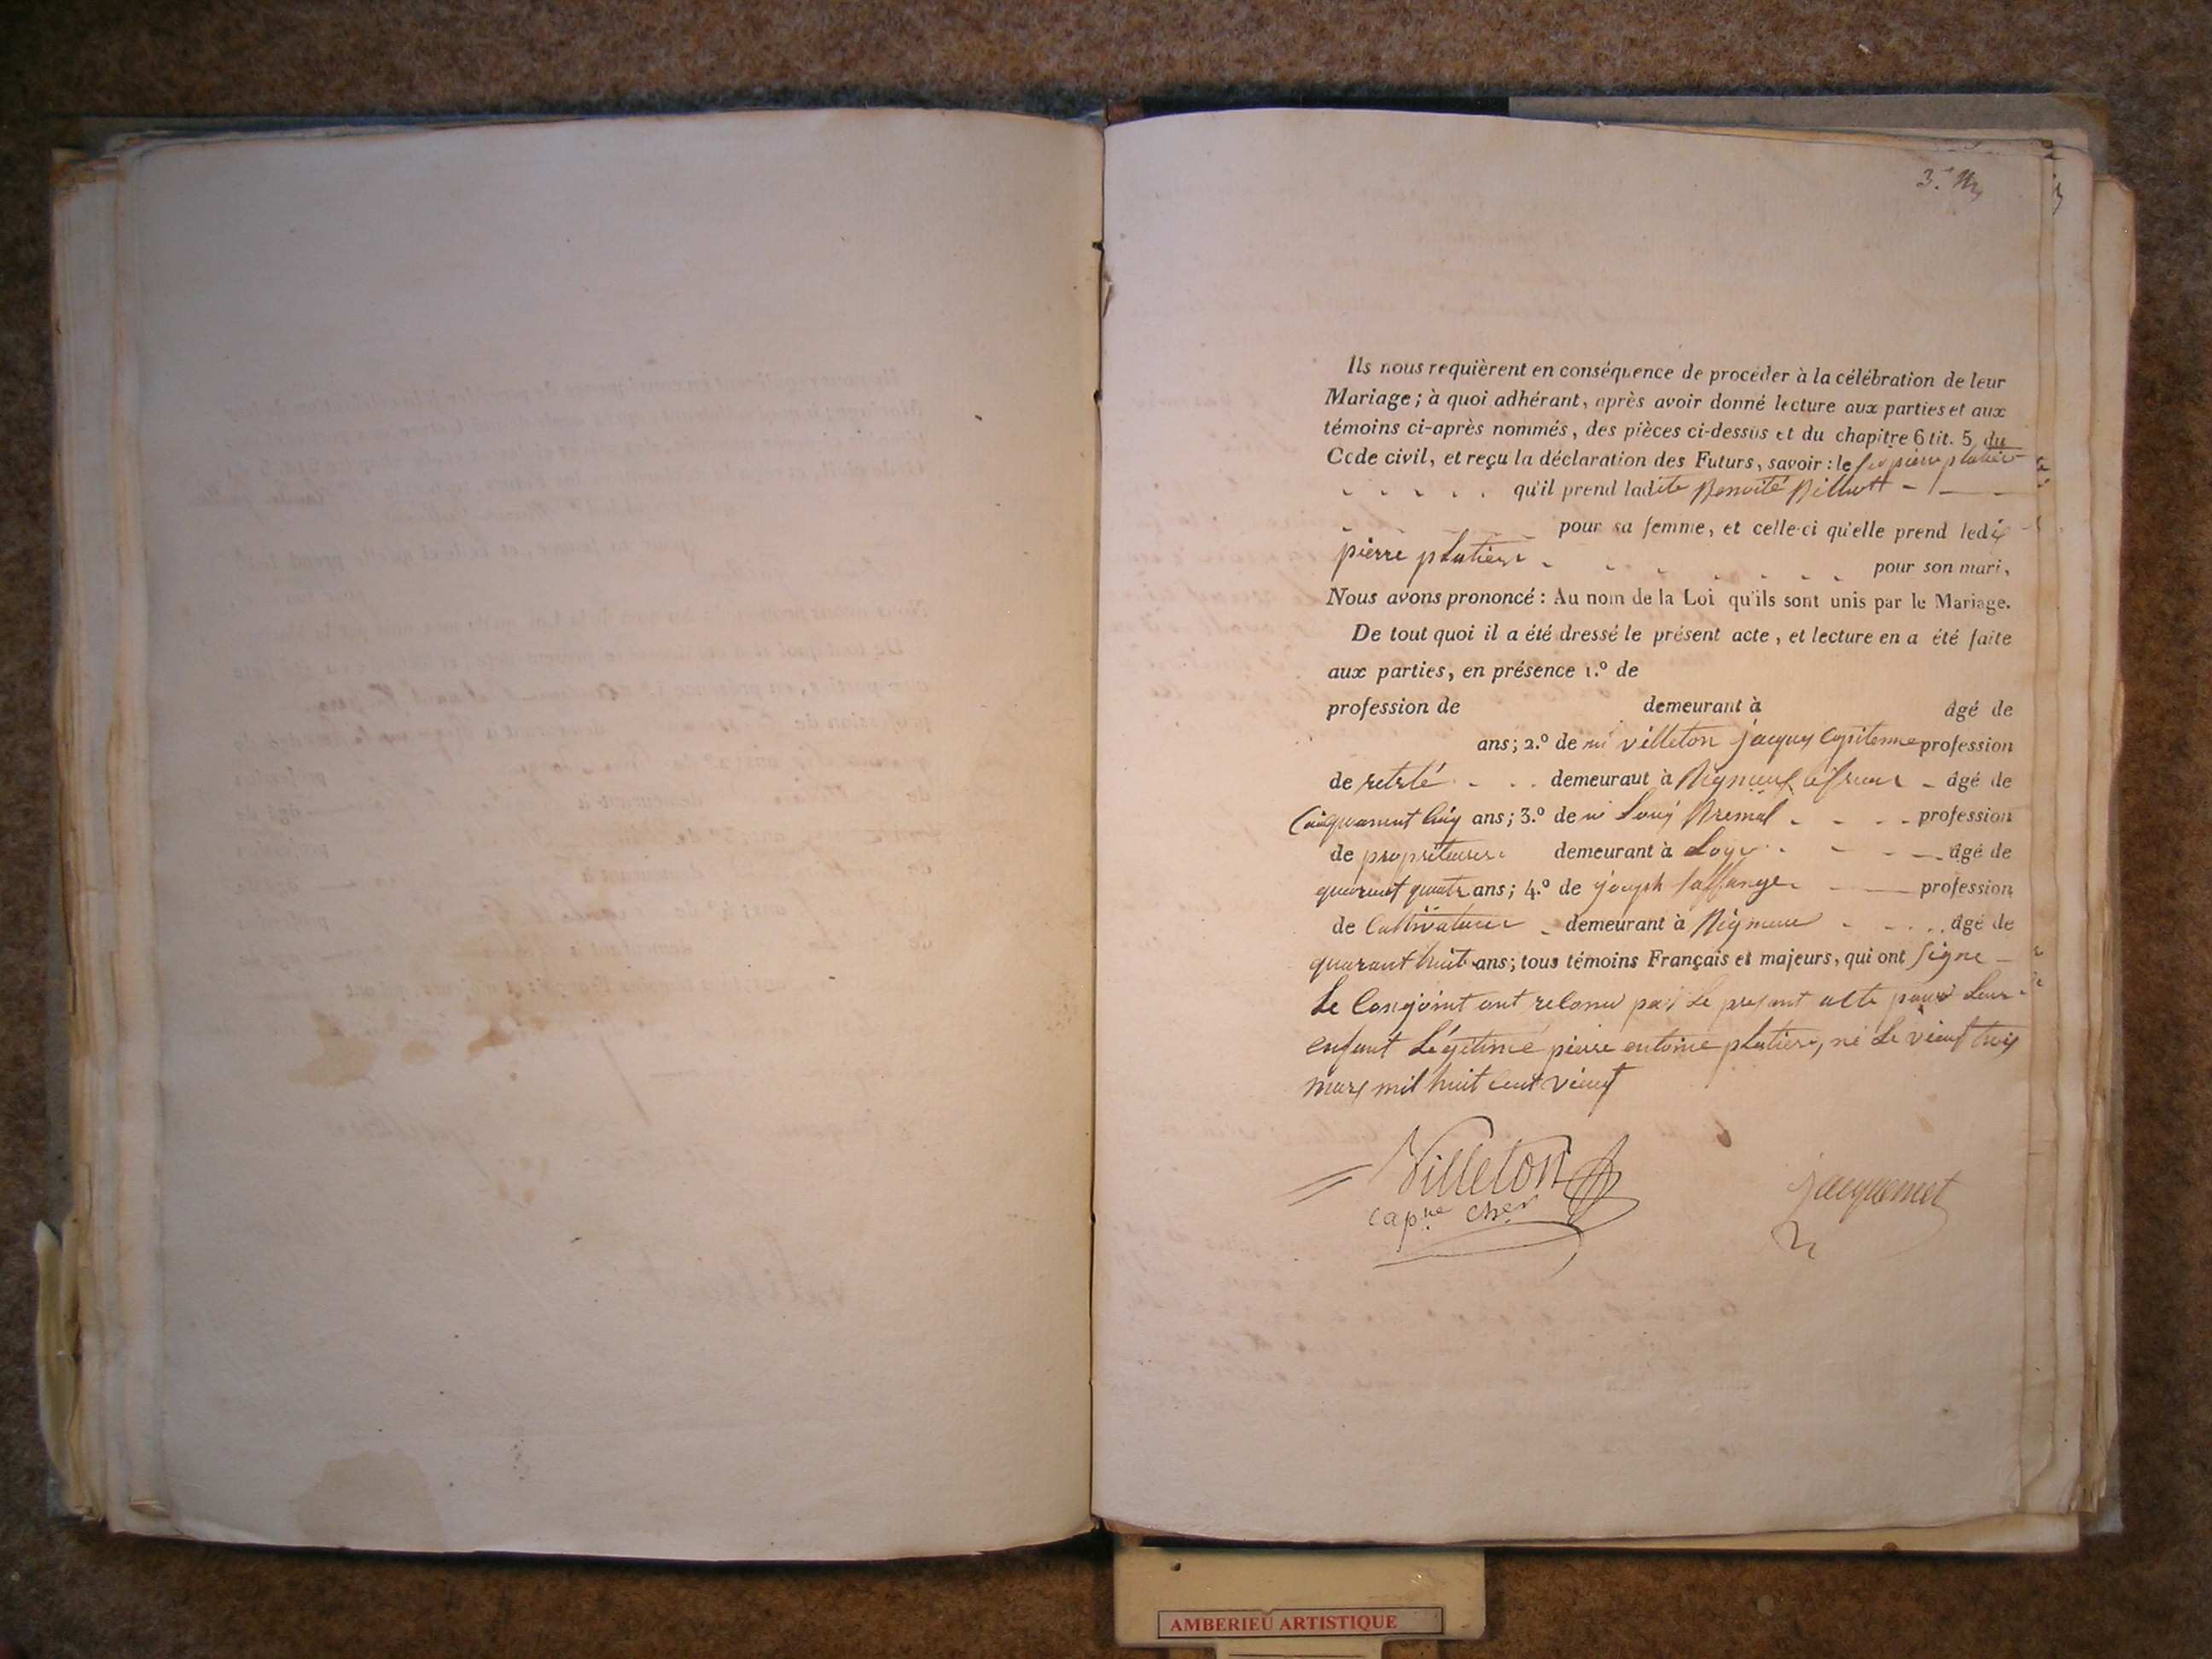 3.
Ils nous requièrent en conséquence de procéder à la célébration de leur
Mariage; à quoi adhérant, après avoir donné lecture aux parties et aux
témoins ci-après nommés, des pièces ci-dessus et du chapitre 6 tit. 5 du
Code civil, et reçu la déclaration des Futurs, savoir : le pierre platière
qu'il prend ladite Benoité
pour sa femme, et celle-ci qu'elle prend ledi
pierre platière pour son mari,
Nous avons prononcé : Au nom de la Loi qu'ils sont unis par le Mariage.
De tout quoi il a été dressé le présent acte, et lecture en a été faite
aux parties, en présence 1.º de
profession de demeurant à âgé de
ans; 2.º de villeton jacques Capitenne profession
de retrté demeurant à âgé de
Cinquannt Cinq ans; 3.º de profession
de propriétaire demeurant à Loye âgé de
quarant quatr ans; 4.º de joseph profession
de Cultivateur demeurant à Rigneux âgé de
quarant huit ans; tous témoins Français et majeurs, qui ont signe
Le Conjoint ont reconu par Le present acte pour Leur
enfant Légitime pierre entoine platiere, né Le vient trois
mars mil huit cent vient
Villeton
cap.ne cher
jacquemet
AMBERIEU ARTISTIQUE